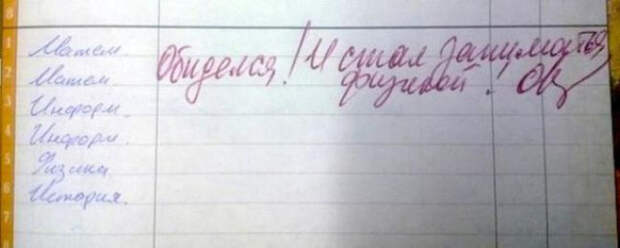 8
1 Матем.
Обиделся! И стал заниматься
2 Матем.
физикой!
3 Информ.
4 Информ.
5 Физика
6 История.
7
8